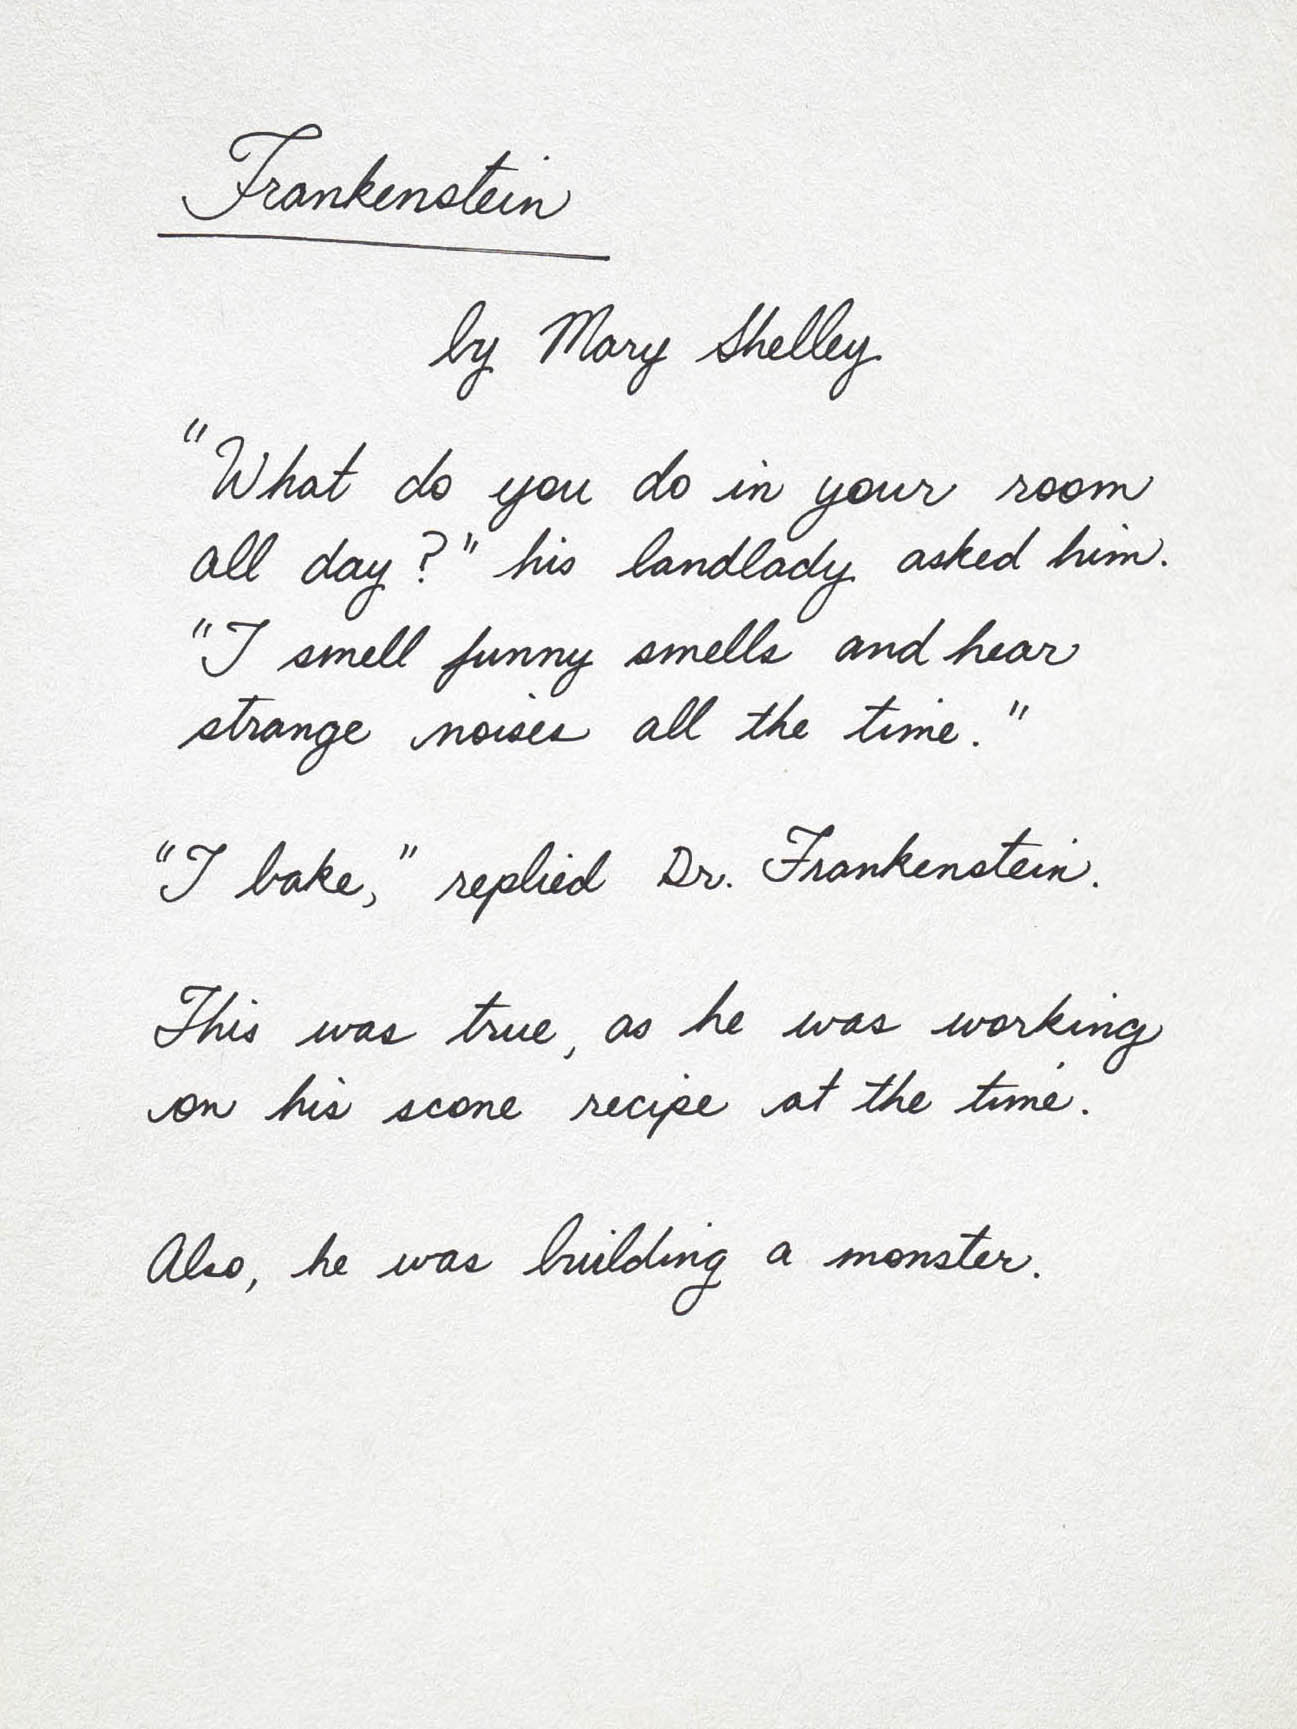 Frankenstein
by Mary Shelley
"What do you do in your room
all day?" his landlady asked him.
"I smell funny smells and hear
strange noises all the time."
"I bake," replied Dr. Frankenstein.
This was true, as he was working
on his scone recipe at the time.
Also, he was building a monster.